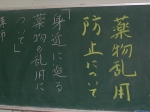 薬物乱用
防止について
「身近に迫る
薬物の乱用に
ついて」